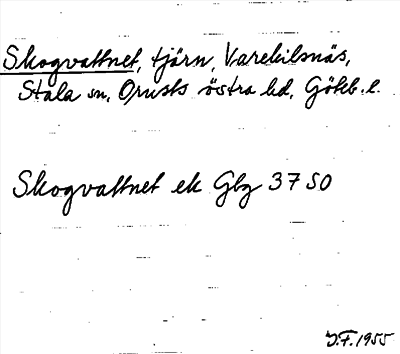 Skogvattnet, tjärn, Varekilsnäs,
Stala sn, Orusts östra hd, Göteb. l.
Skogvattnet ek Gbg 37 SO
J.F. 1955